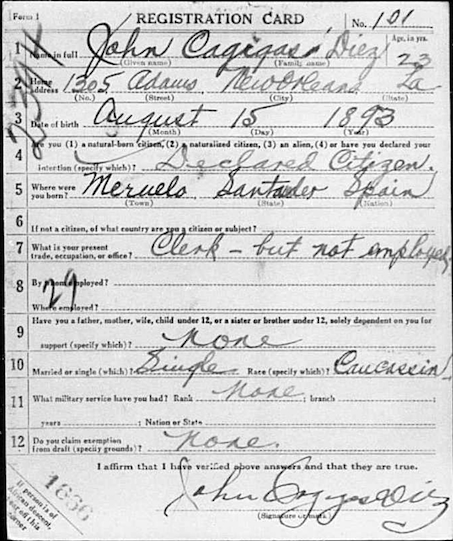 Form 1 REGISTRATION CARD No. 101
1 Name in full John Cagigas Diez Age, in yrs. 23
(Given name) (Family name)
2 Home address 1305 Adams New Orleans La
(No.) (Street) (City) (State)
3 Date of birth August 15 1893
(Month) (Day) (Year)
4 Are you (1) a natural-born citizen, (2) a naturalized citizen, (3) an alien, (4) or have you declared your
intention (specify which)? Declared Citizen.
5 Where were you born? Meruelo Santader Spain
(Town) (State) (Nation)
6 If not a citizen, of what country are you a citizen or subject?
7 What is your present trade, occupation, or office? Clerk - but not employed
8 By whom employed?
29
Where employed?
9 Have you a father, mother, wife, child under 12, or a sister or brother under 12, solely dependent on you for
support (specify which)? None
10 Married or single (which)? Single Race (specify which)? Caucassin
11 What military service have you had? Rank None ; branch
years ; Nation or State
12 Do you claim exemption from draft (specify grounds)? None.
I affirm that I have verified above answers and that they are true.
John Cagigas Diez
(Signature or mark)
If person is of African descent, tear off this corner
1636